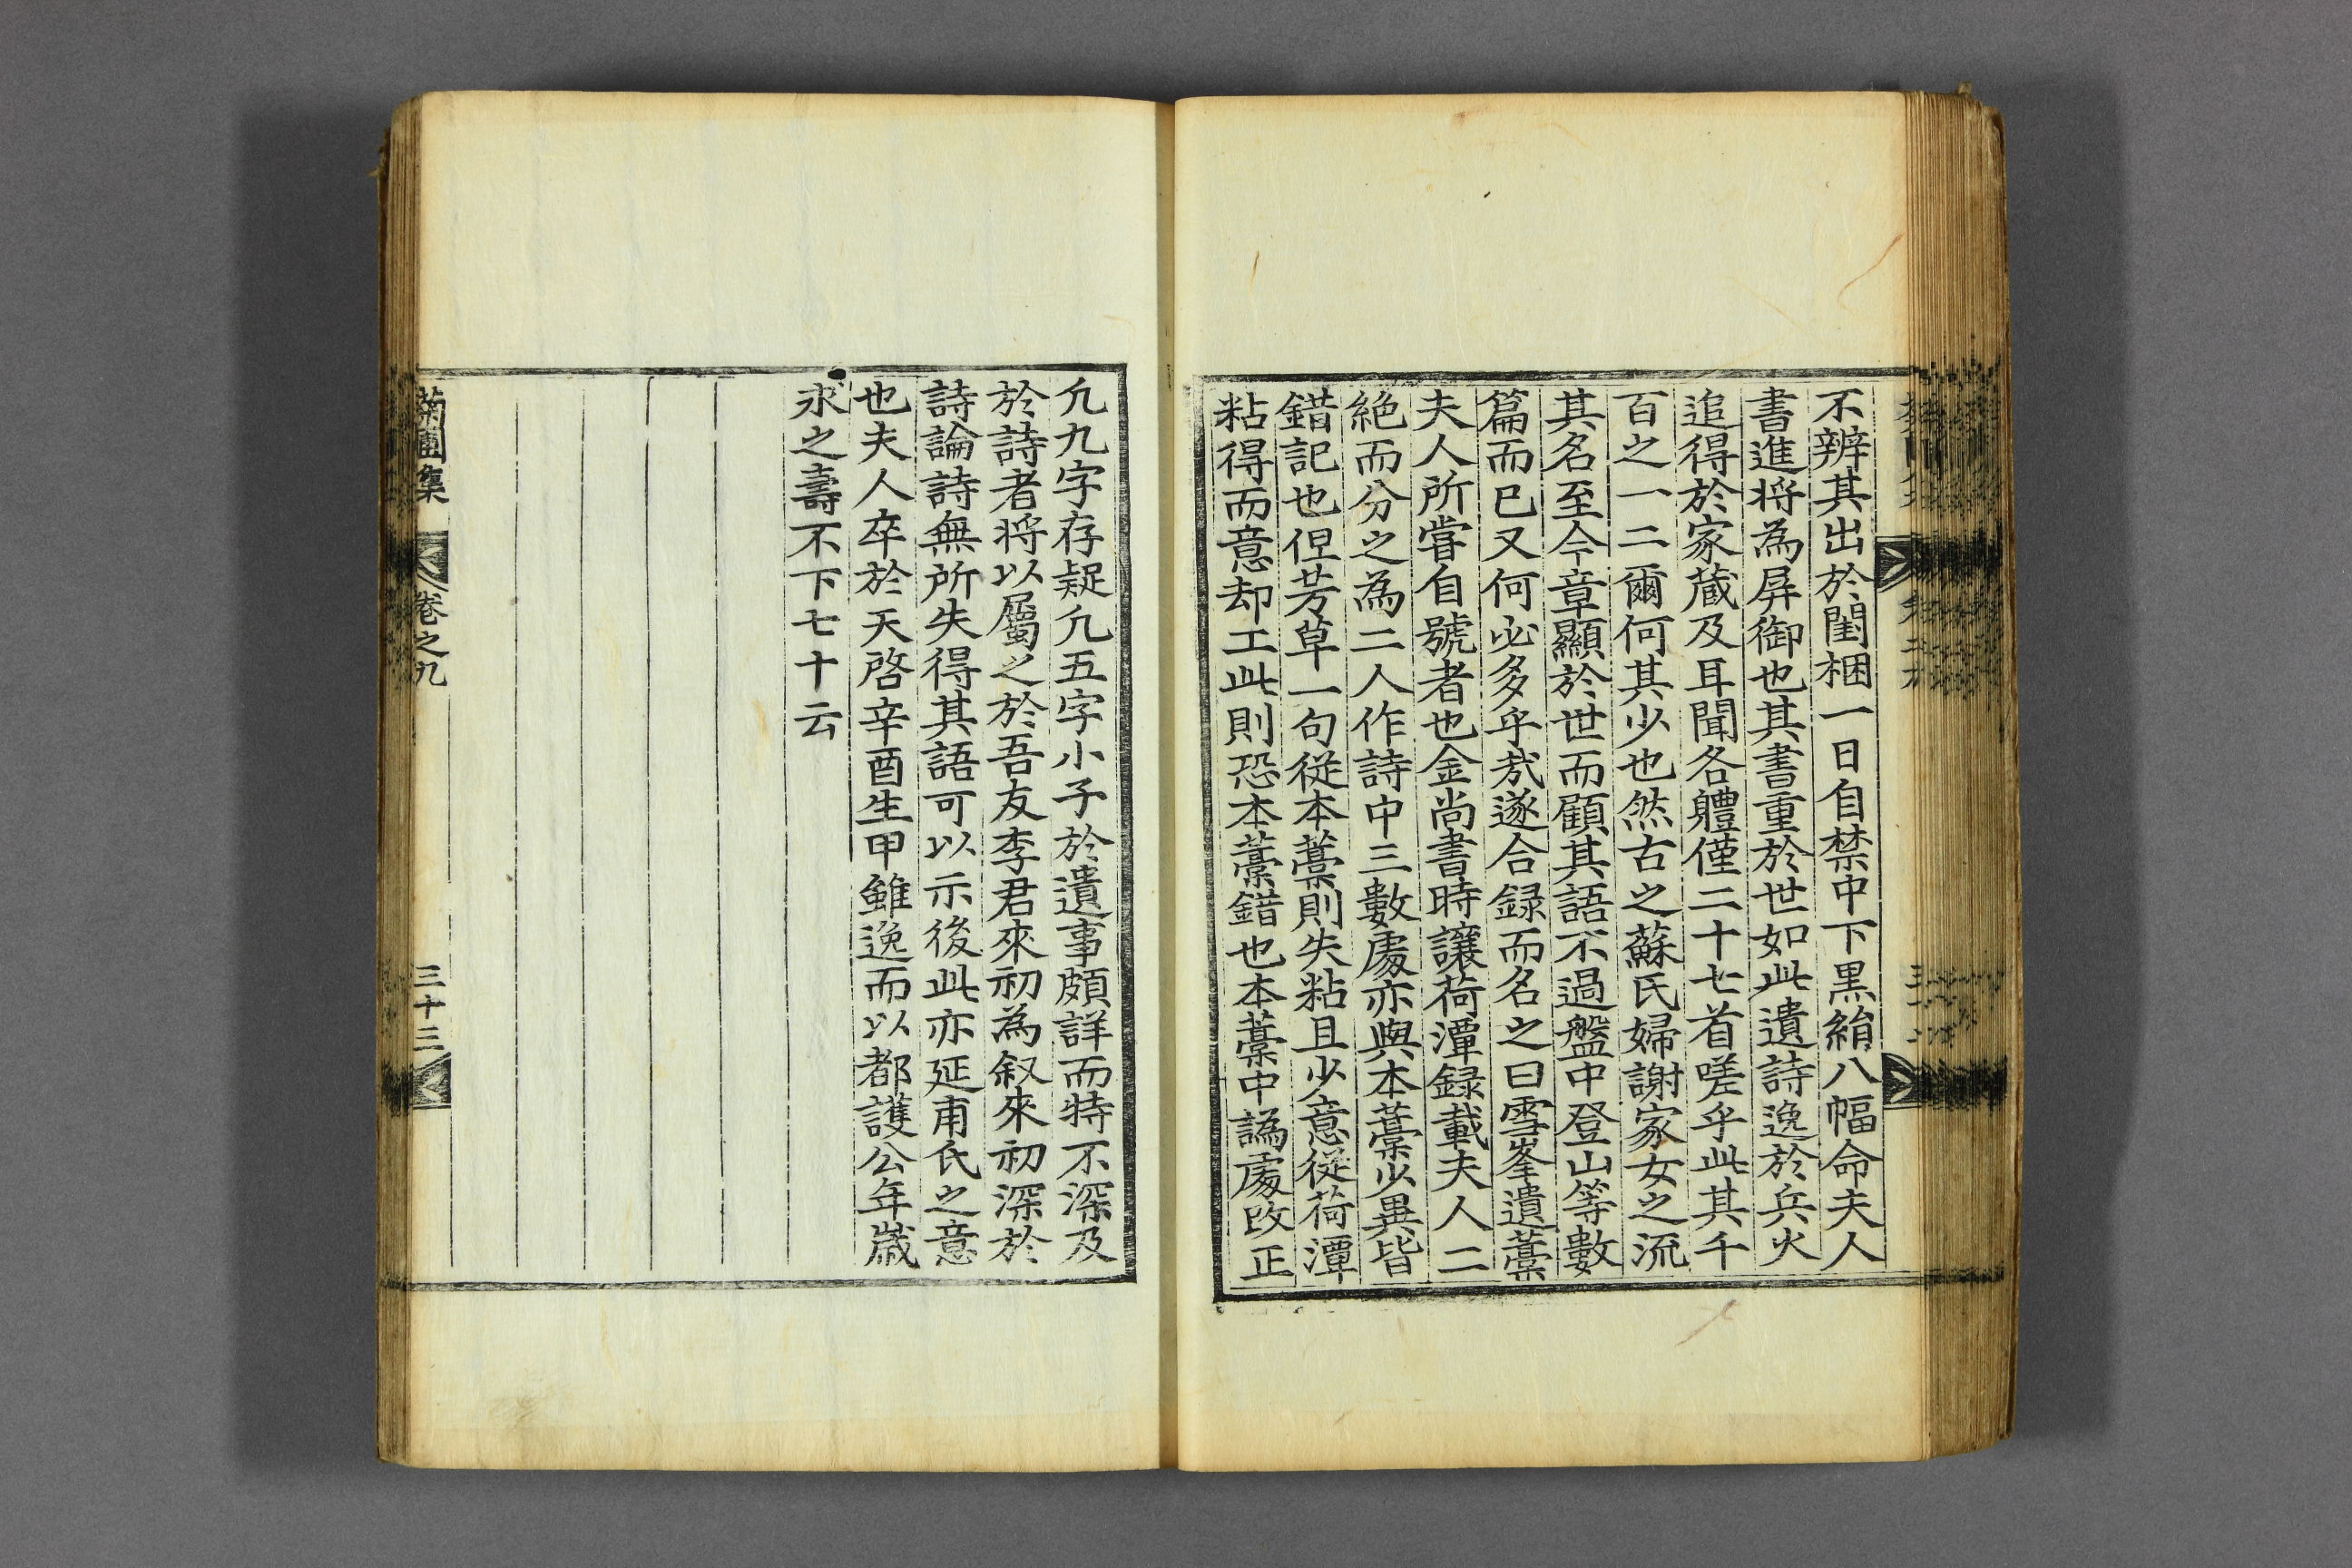 不辨其出於閨梱一日自禁中下黒綃八幅命夫人
書進将為屏御也其書重於世如此遺詩逸於兵火
追得於家蔵及耳聞各軆僅二十七首嗟乎此其千
百之一二爾何其少也然古之蘇氏婦謝家女之流
其名至今章顯於世而顧其語不過盤中登山等數
篇而已又何必多乎㢤遂合録而名之曰雪峯遺藁
夫人所嘗自號者也金尚書時讓荷潭録載夫人二
絶而分之為二人作詩中三數處亦與本藁少異皆
錯記也但芳草一句従本藁則失粘且少意従荷潭
粘得而意却工此則恐本藁錯也本藁中譌處改正
凢九字存疑凢五字小子於遺事頗詳而特不深及
於詩者将以屬之於吾友李君來初為叙來初深於
詩論詩無所失得其語可以示後此亦延甫氏之意
也夫人卒於天啓辛酉生甲雖逸而以都護公年歲
求之壽不下七十云
菊圃集 卷之九 三十三